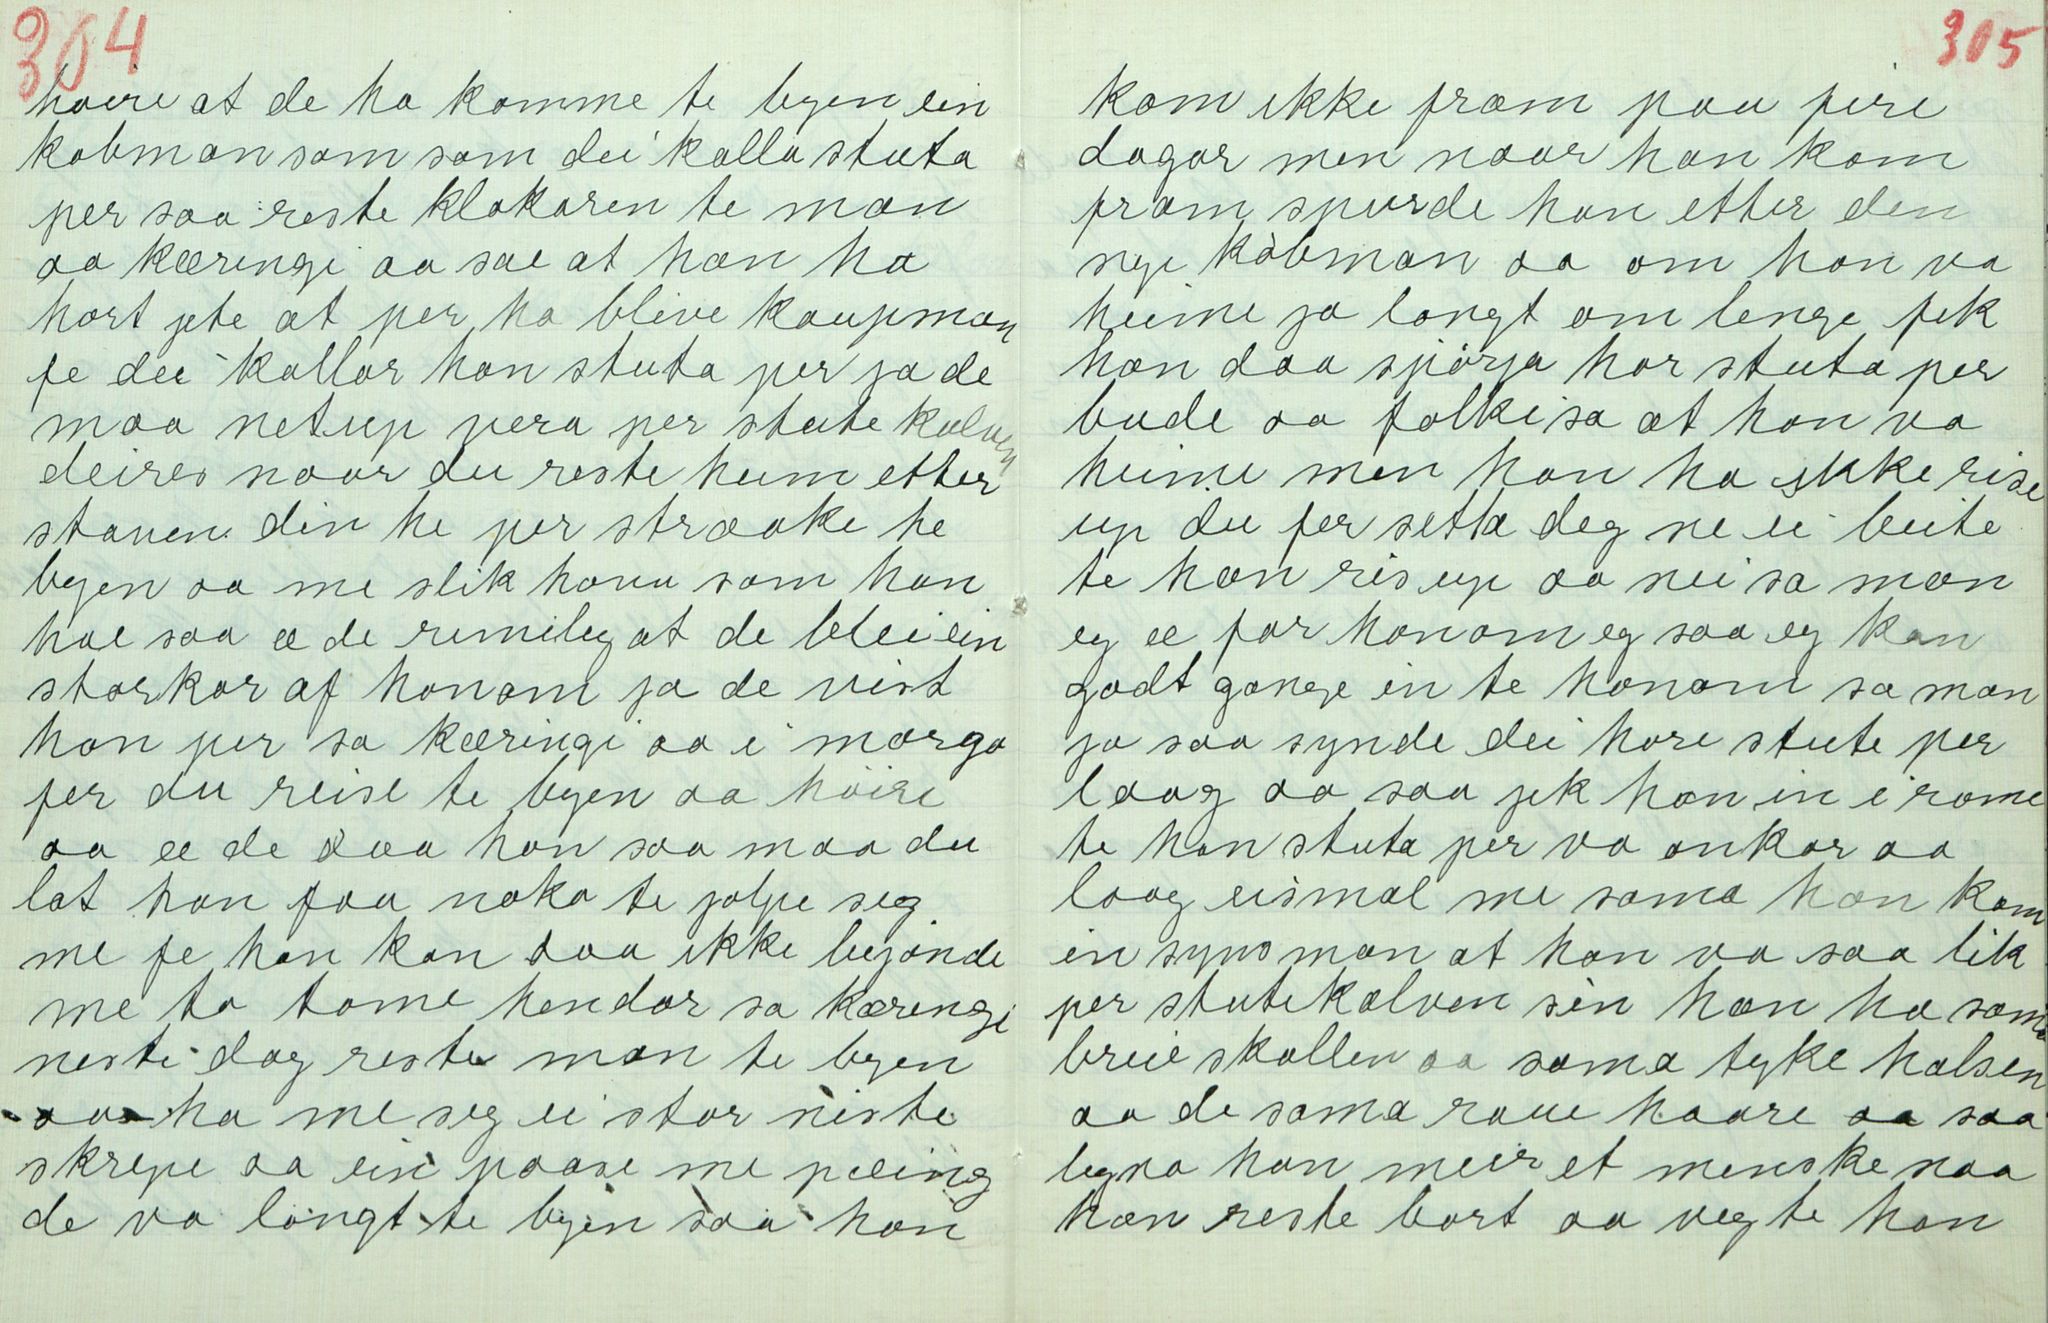 304
høire at de ha komme te byen ein
kobman som som dei kalla stuta
per saa reste klokaren te man
aa kæringi aa sae at han ha
hørt jete at per ha blive kaupman
fe dei kallar han stuta per ja de
maa netup vera per stute kalven
deires naar du reste heim etter
staven din he per strooke he
byen aa me slik hovu som han
hae saa æ de rimileg at de blei ein
storkar af honom ja de vist
han per sa kæringi aa i morgo
fer du reise te byen aa høire
aa æ de daa han saa maa du
lat han faa noko te jolpe seg
me fe han kan daa ikke byønde
me to tome hendar sa kæringi
neste dag reste man te byen
aa ha me seg ei stor niste
skrepe aa ein paase me pæing
de va langt te byen saa han
305
kom ikke fram paa fire
dagar men naar han kom
fram spurde han etter den
nye kòbman aa om han va
heime ja langt om lenge fek
han daa spørja hor stuta per
bude aa folki sa at han va
heime men han ha ikke rise
up du fer setta deg ne ei beite
te han ris up aa nei sa man
eg æ far honom eg saa eg kan
godt gonge in te honom sa man
ja saa synde dei hore stute per
laag aa saa jek han in i rome
te han stuta per va onkar aa
laag eismal me sama han kom
in syns man at han va saa lik
per stutekalven sin han ha sama
breie skallen aa sama tyke halsen
aa de sama roue haare aa saa
byva han meir et menske naa
han reste bort aa veg te han